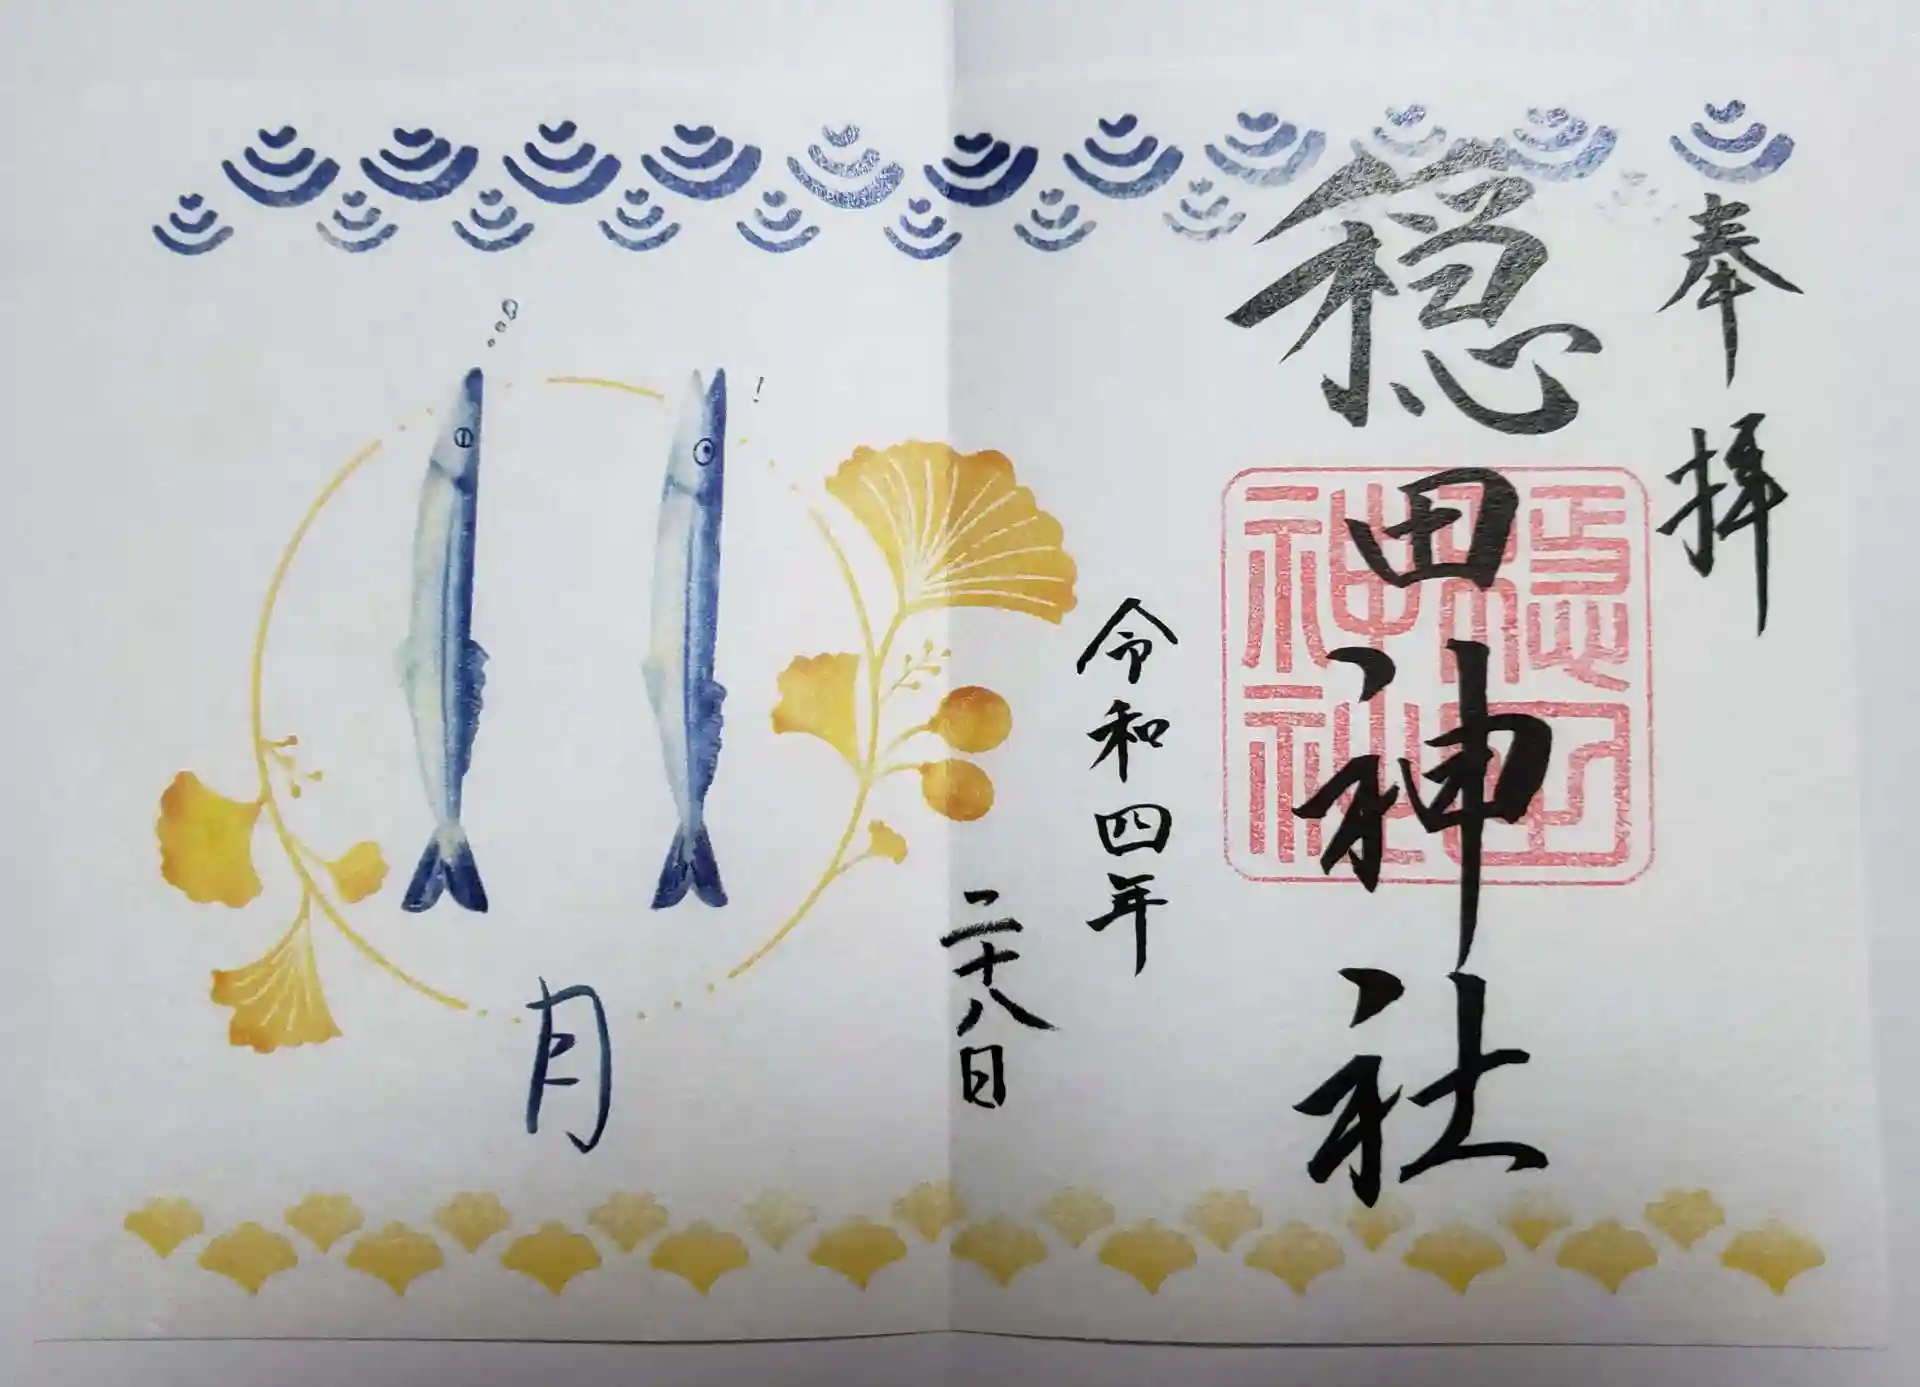 奉拝
穏田神社
穏田神社
令和四年
月
二十八日